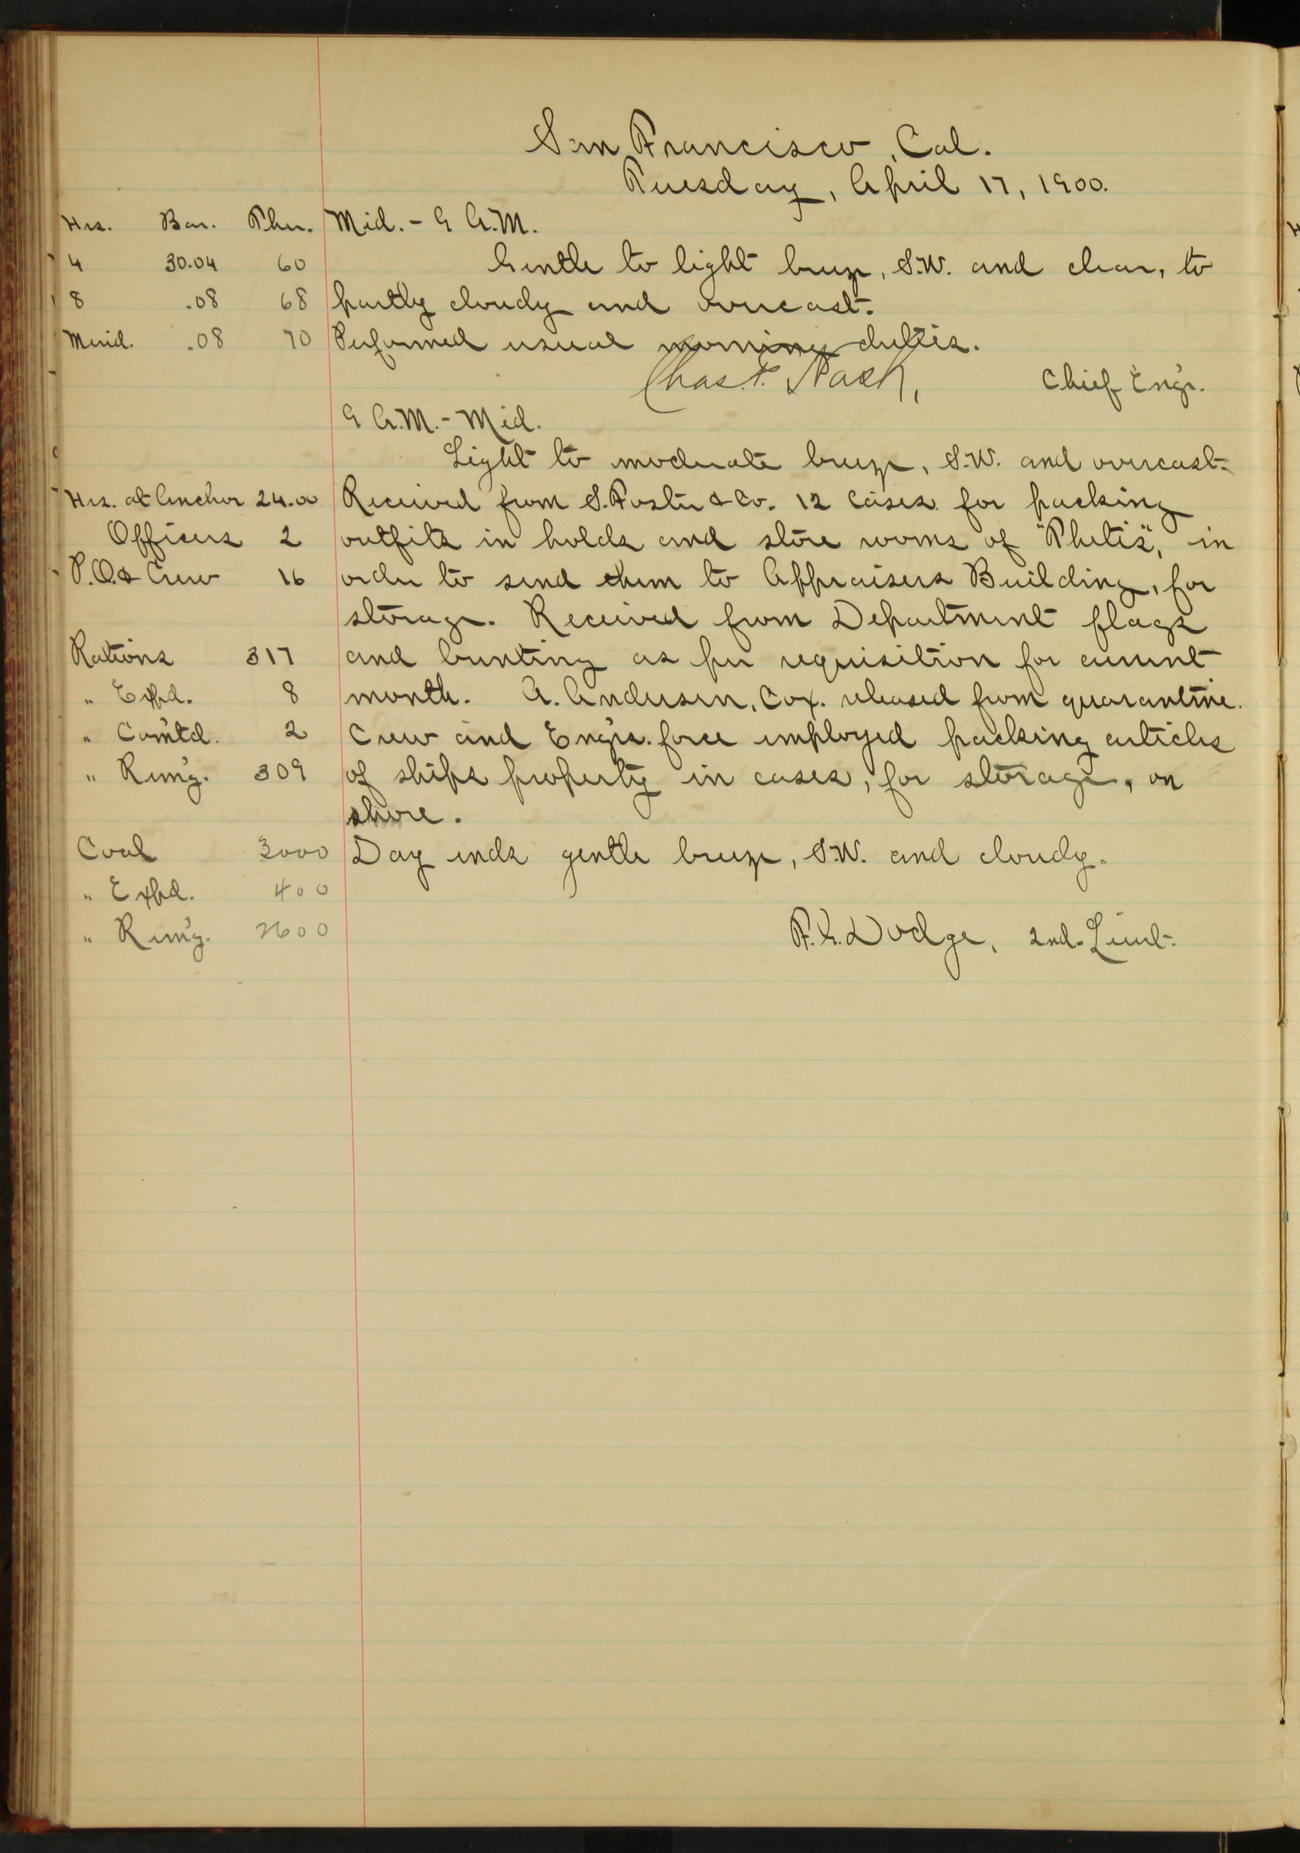 San Francisco, Cal.
Tuesday, April 17, 1900.
Hrs. Bar. Ther. Mid. - 9 A.M.
4 30.04 60 Gentle to light breeze, S.W. and clear, to
8 .08 68 partly cloudy and overcast.
Merid. .08 70 Performed usual morning duties.
Chas. F. Nash, Chief Eng'r.
9 A.M. - Mid.
Light to moderate breeze, S.W. and overcast.
Hrs. at Anchor 24.00 Received from S. Foster & Co. 12 cases for packing
Officers 2 outfits in holds and store rooms of "Thetis", in
P.O. & Crew 16 order to send them to Appraisers Building, for
storage. Received from Department flags
Rations 317 and bunting as per requisition for current
" Expd. 8 month. A. Andersen, Cox. released from quarantine.
" Com'td. 2 Crew and Eng'rs. force employed packing articles
" Rem'g. 309 of ships property in cases, for storage, on
shore.
Coal 3000 Day ends gentle breeze, S.W. and cloudy.
" Expd. 400
" Rem'g. 2600
F. G. Dodge, 2nd. Lieut.